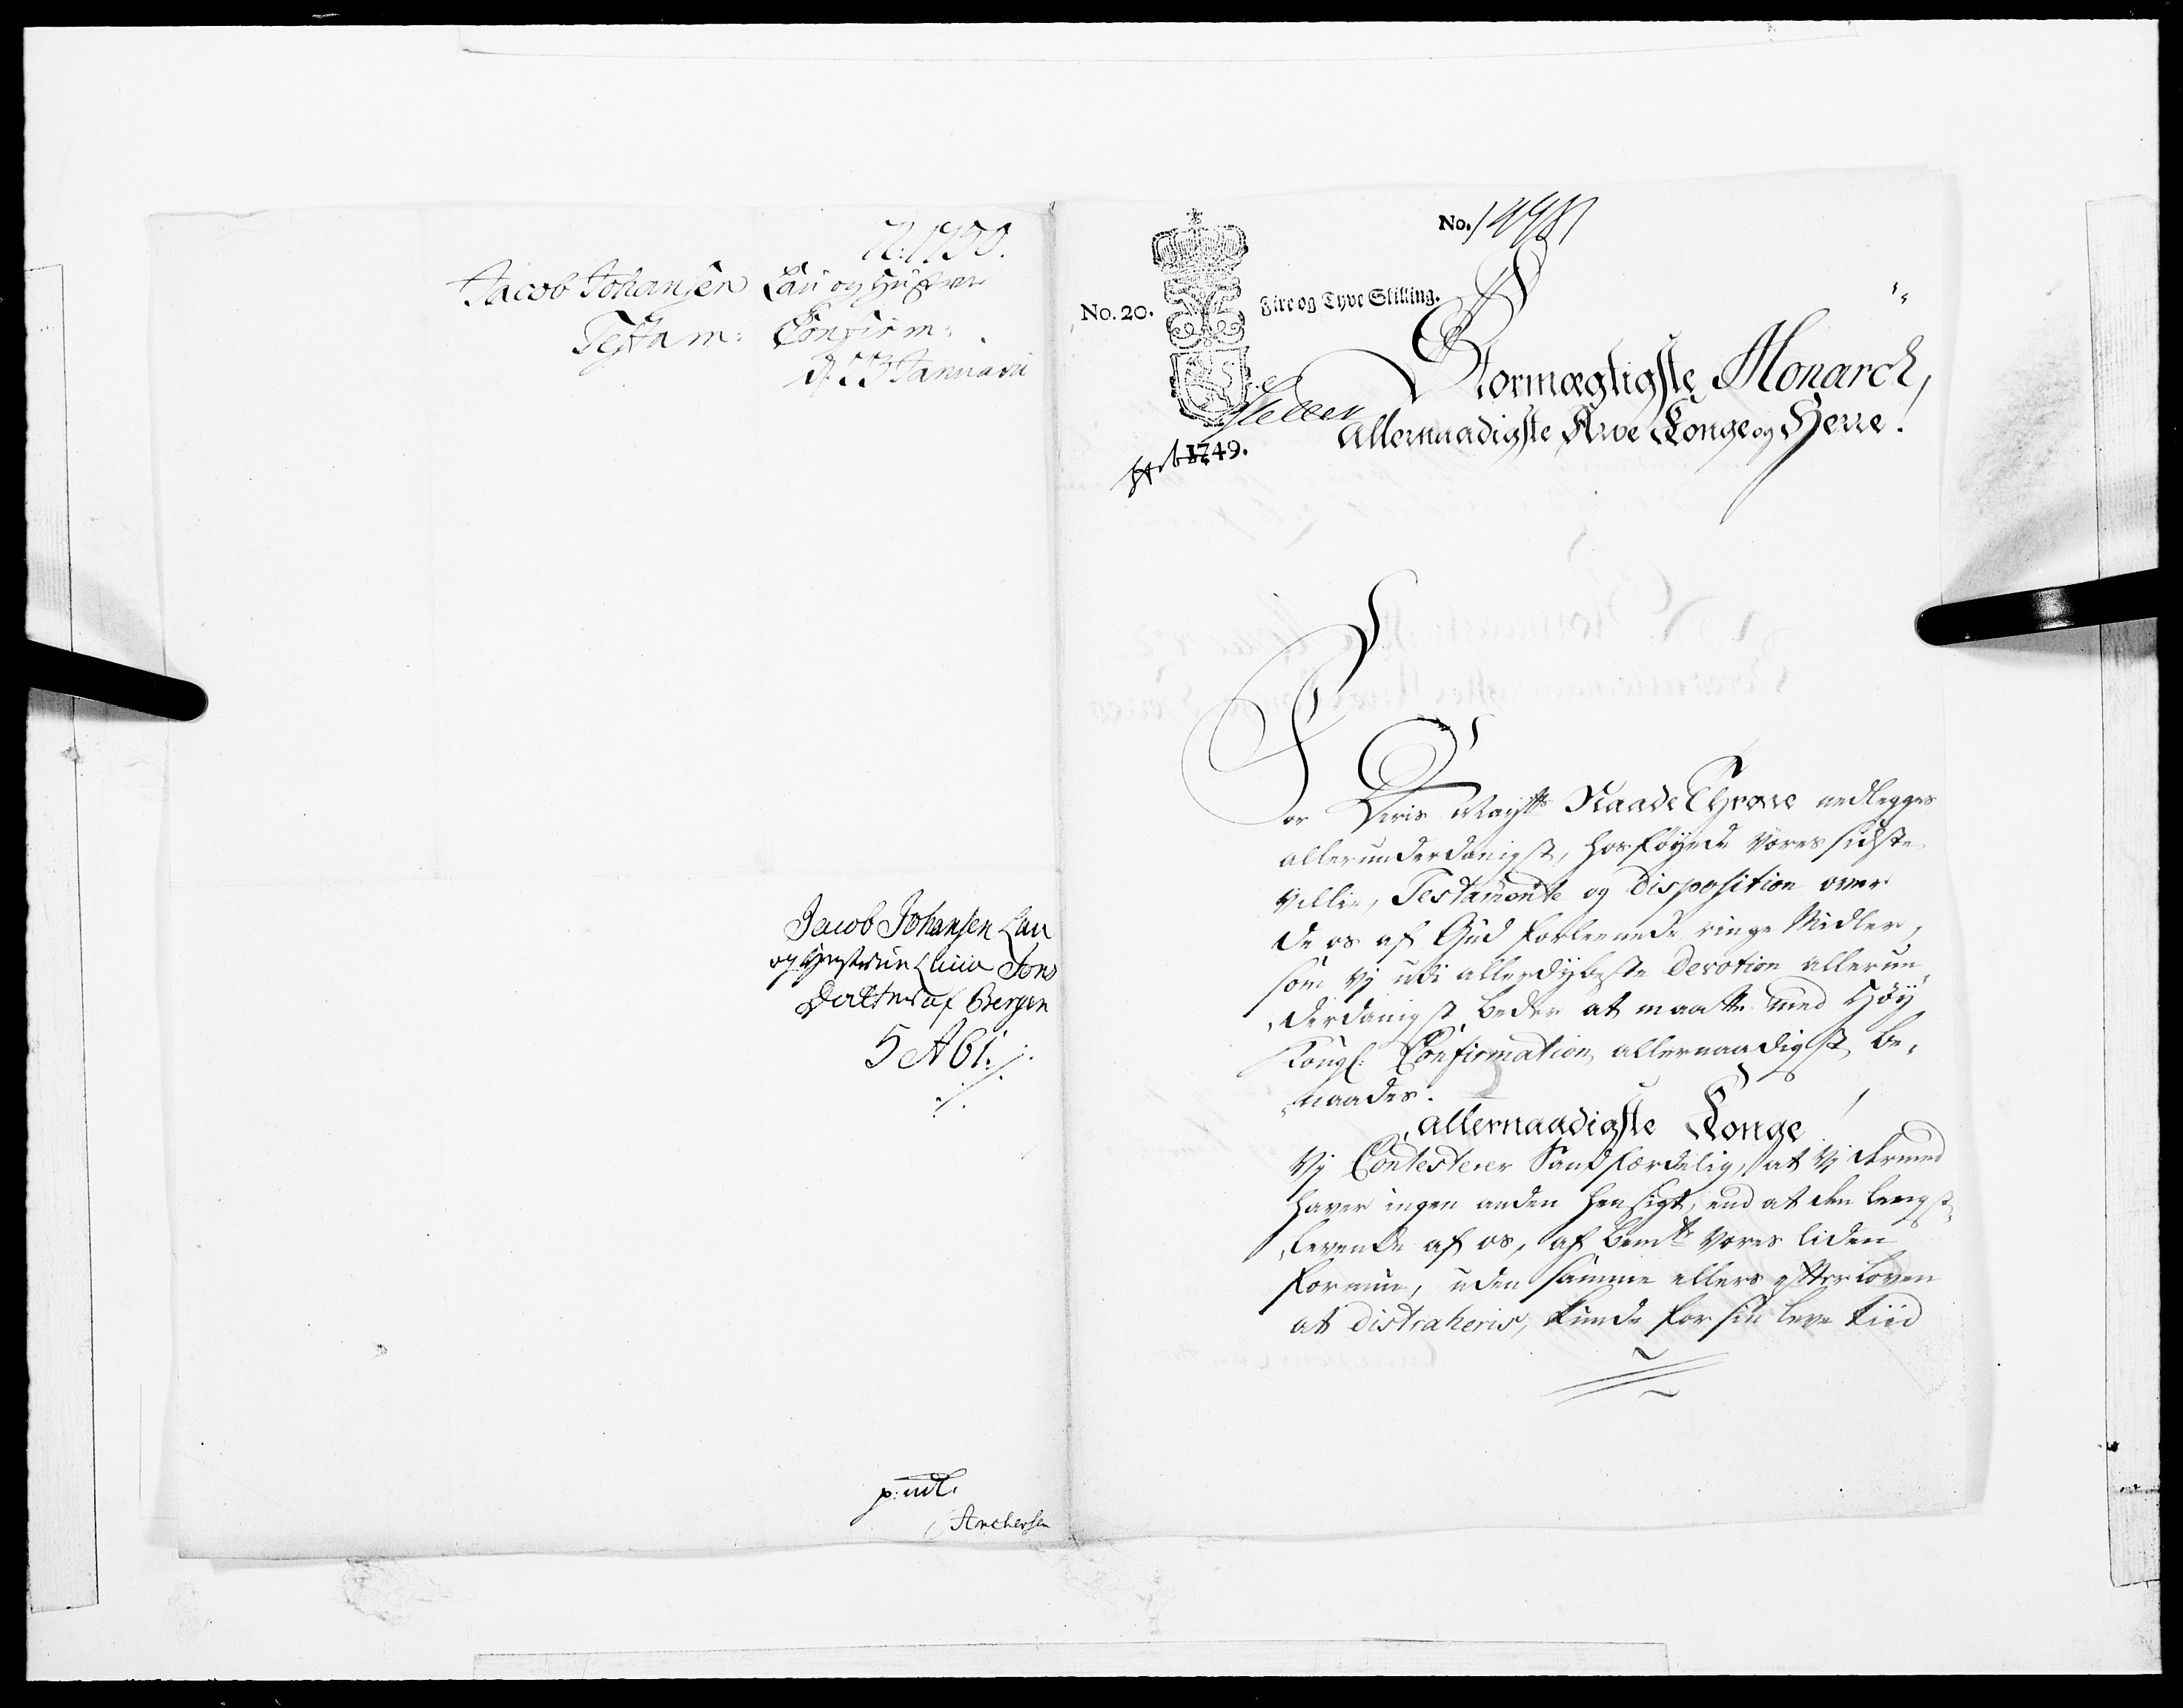 N: 1750.
Jacob Johansen Lau og Hustrue
Testam: Confirm:
d 23 Januarii
Jacob Johansen Lau
og Hustrue Jons
Datter af Bergen
5 Abl:
p: mdl.
Anchersen
No. 14981
No. 20.
Fire og Tyve Skilling.
1749.
Stormægtigste Monarch,
Allernaadigste Arve Konge og Herre!
For Deris Mayts Naade Throne nedlegges
allerunderdanigst, hosføyede vores sidste
Villie, Testamente og Disposition over
de os af Gud forleenede ringe Midler,
som vj udi allerdybeste Devotion allerun-
derdanigst beder at maatte med Høy
Kongl: Confirmation, allernaadigst be-
naades.
Allernaadigste Konge!
Vj Contesterer Sandfærdelig, at vj hermed
haver ingen anden hensigt, end at den lengst-
levende af os, af bemte vores liden
formue, uden samme ellers efter loven
at distraheris, kunde for sin leve tiid